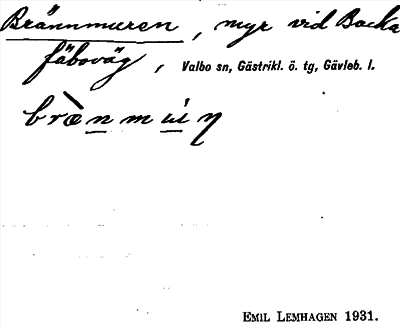 Brännmuren, myr vid Backa
fäboväg, Valbo sn, Gästrikl. ö. tg, Gävleb. l.
EMIL LEMHAGEN 1931.